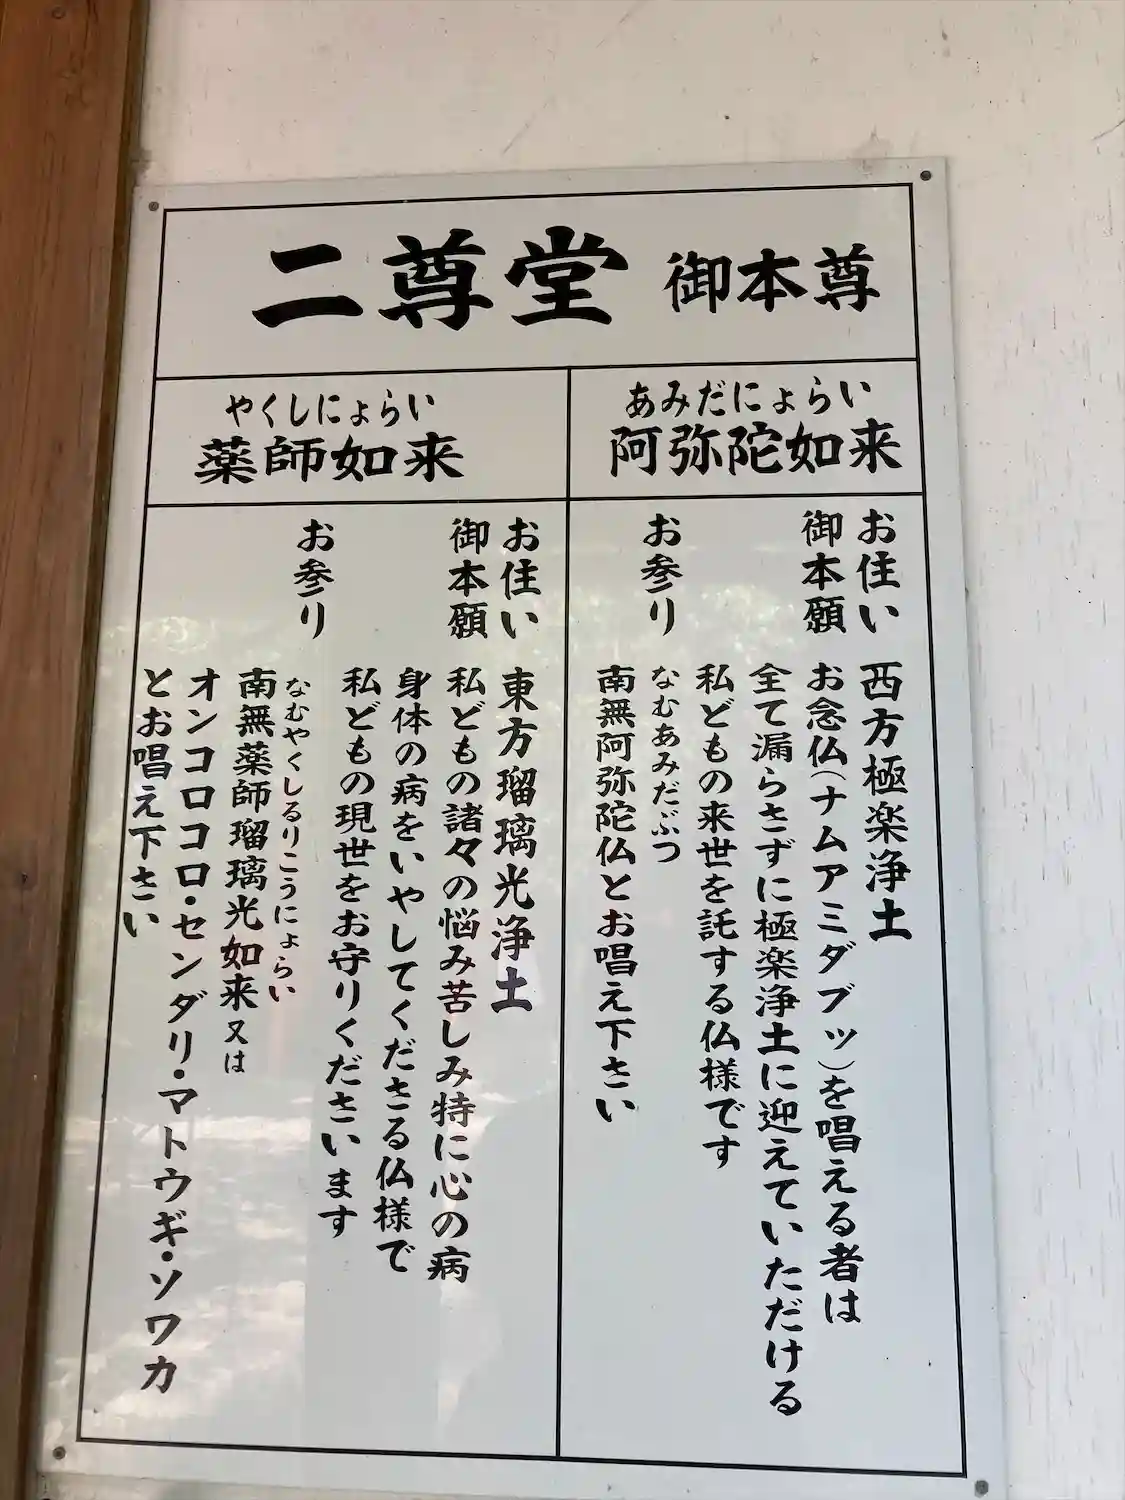 二尊堂 御本尊
あみだにょらい
阿弥陀如来
お住い 西方極楽浄土
御本願 お念仏(ナムアミダブツ)を唱える者は
全て漏らさずに極楽浄土に迎えていただける
私どもの来世を託する仏様です
お参り
なむあみだぶつ
南無阿弥陀仏とお唱え下さい
やくしにょらい
薬師如来
お住い 東方瑠璃光浄土
御本願 私どもの諸々の悩み苦しみ特に心の病
身体の病をいやしてくださる仏様で
私どもの現世をお守りくださいます
お参り
なむやくしるりこうにょらい
南無薬師瑠璃光如来又は
オンコロコロ・センダリ・マトウギ・ソワカ
とお唱え下さい